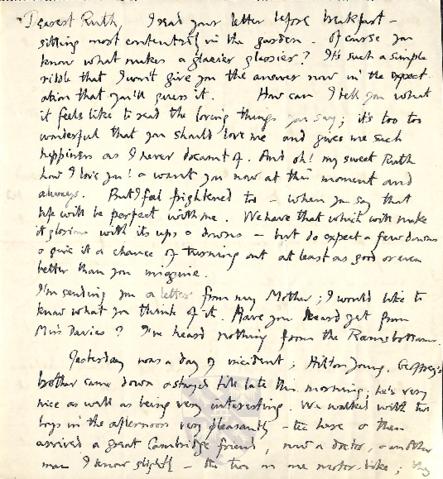 Dearest Ruth I read your letter before breakfast –
sitting most contentedly in the garden. Of course you
know what makes a glacier glacier? It's such a simple
riddle that I won't give you the answer now in the expect-
ation that you'll guess it. How can I tell you what
it feels like to read the loving things you say; it's too too
wonderful that you should love me and give me such
happiness as I never dreamt of. And oh! my sweet Ruth
how I love you! & want you now at this moment and
always. But I feel frightened too – when you say that
life will be perfect with me. We have that which will make
it glorious with its ups & downs – but do expect a few downs
& give it a chance of turning out at least as good or even
better than you imagine.
I'm sending you a letter from my Mother; I would like to
know what you think of it. Have you heard yet from
Miss Davies? I've heard nothing from the Ramsbottoms.
Yesterday was a day of incident; Hilton Young, Geoffrey's
brother came down & stayed till late this morning; he's very
nice as well as being very interesting. We walked with two
boys in the afternoon very pleasantly – to
arrived a great Cambridge friend, now a doctor, & another
man I know slightly – the two on one motor-bike; they